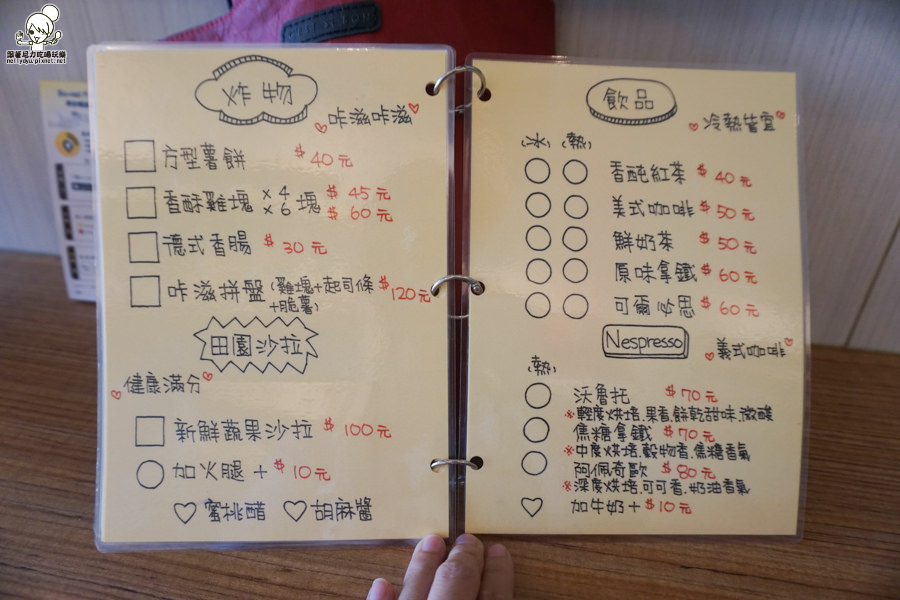 跟著尼力吃喝玩樂
nellydyu.pixnet.net
炸物
咔滋咔滋
方型薯餅 $40元
香酥雞塊 ×4 $45元
×6塊 $60元
德式香腸 $30元
咔滋拼盤(雞塊+起司條+脆薯) $120元
田園沙拉
健康滿分
新鮮蔬果沙拉 $100元
加火腿 + $10元
蜜桃醋 胡麻醬
飲品
冷熱皆宜
(冰) (熱)
香醇紅茶 $40元
美式咖啡 $50元
鮮奶茶 $50元
原味拿鐵 $60元
可爾必思 $60元
Nespresso
義式咖啡
(熱)
沃魯托 $70元
※輕度烘培.果香.餅乾甜味.微酸
焦糖拿鐵 $70元
※中度烘培.穀物香.焦糖香氣
阿佩奇歐 $80元
※深度烘培.可可香.奶油香氣
加牛奶+$10元